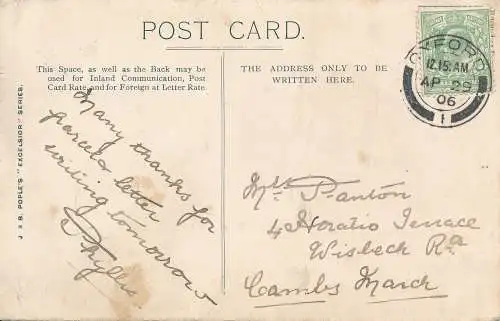 POST CARD.
This Space, as well as the Back may be
used for Inland Communication, Post
Card Rate, and for Foreign at Letter Rate.
THE ADDRESS ONLY TO BE
WRITTEN HERE.
J & B. POPLE'S "EXCELSIOR" SERIES.
OXFORD
12.15.AM
AP 29
06
1
Many thanks for
parcel & letter
writing tomorrow
Phyllis.
Mrs Panton
4 Horatio Terrace
Wisbech Rd
Cambs March